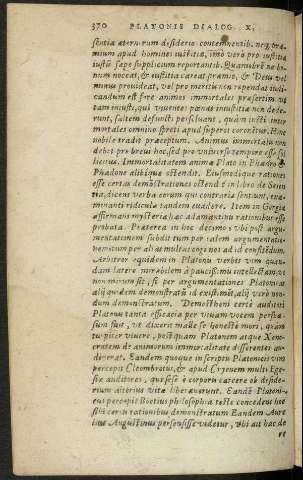 370 PLATONIS DIALOG. X,
sentia æternarum desiderio contemnentib. neq; præ-
mium apud homines iustitia, imò verò pro iustitia
iusti sæpe supplicium reportantib. Quamobrẽ ne bo-
num noceat, & iustitia careat præmio, & Deus vel
minus prouideat, vel pro meritis non rependat iudi-
candum est fore animos immortales præsertim vt
tam iniusti, qui viuentes pœnas iniustitiæ non dede-
runt, saltem defuncti persoluant, quàm iusti immor-
tales omnino spreti apud superos coronẽtur. Hinc
nobile tradit præceptum. Animus immortalis non
debet pro breui hoc, sed pro vniuerso tempore esse sol-
licitus. Immortalitatem animæ Plato in Phædro &
Phædone alibique ostendit. Eiusmodique rationes
esse certas demõstrationes ostendit in libro de Scien-
tia, dicens verba eorum qui contraria sentiunt, exa-
minanti ridicula tandem euadere. Item in Gorgia
affirmans mysteria hæc adamantinis rationibus esse
probata. Præterea in hoc decimo, vbi post argu-
mentationem subdit tum per talem argumentatio-
nem tum per alias molitas cogi nos ad id confitẽdum.
Arbitror equidem in Platonis verbis vim quan-
dam latere mirabilem à paucissimis intellectam, vt
non mirum sit, si per argumentationes Platonicas
alij quidem demonstratũ id existiment, alij verò non-
dum demonstratum. Demostheni certè auditori
Platonis tanta efficacia per viuam vocem persua-
sum fuit, vt dixerit malle se honestè mori, quàm
turpiter viuere, postquam Platonem atque Xeno-
cratem de animorum immortalitate disserentes au-
dierat. Eandem quoque in scriptis Platonicis vim
percepit Cleombrotus, & apud Cyrenem multi Ege-
siæ auditores, qui sese è corporis carcere ob deside-
rium alterius vitæ liberauerunt. Eandẽ Platoni-
cis percepit Boetius philosophia teste concedens hoc
sibi certis rationibus demonstratum Eandem Aure
lius Augustinus persensisse videtur, vbi ait hac de
re